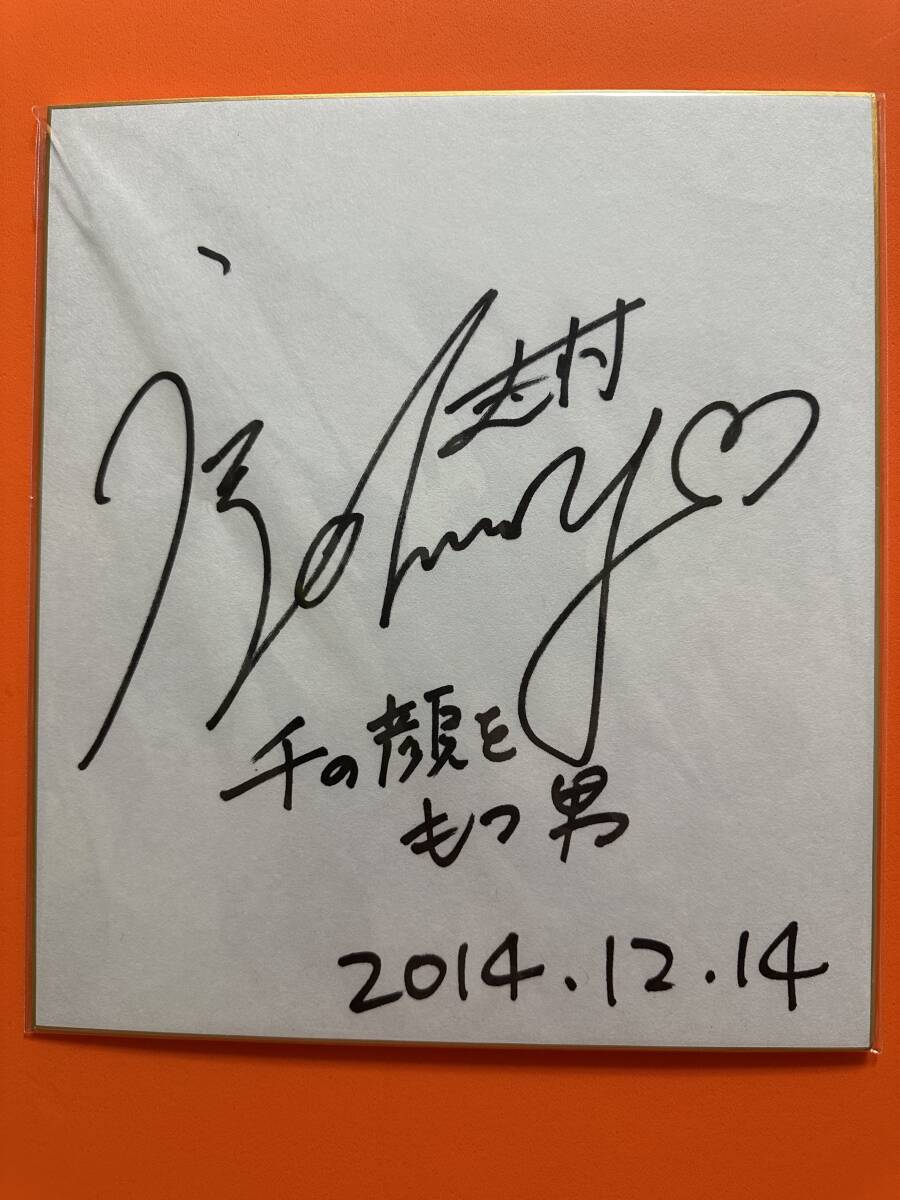 志村
千の顔を
もつ男
2014.12.14